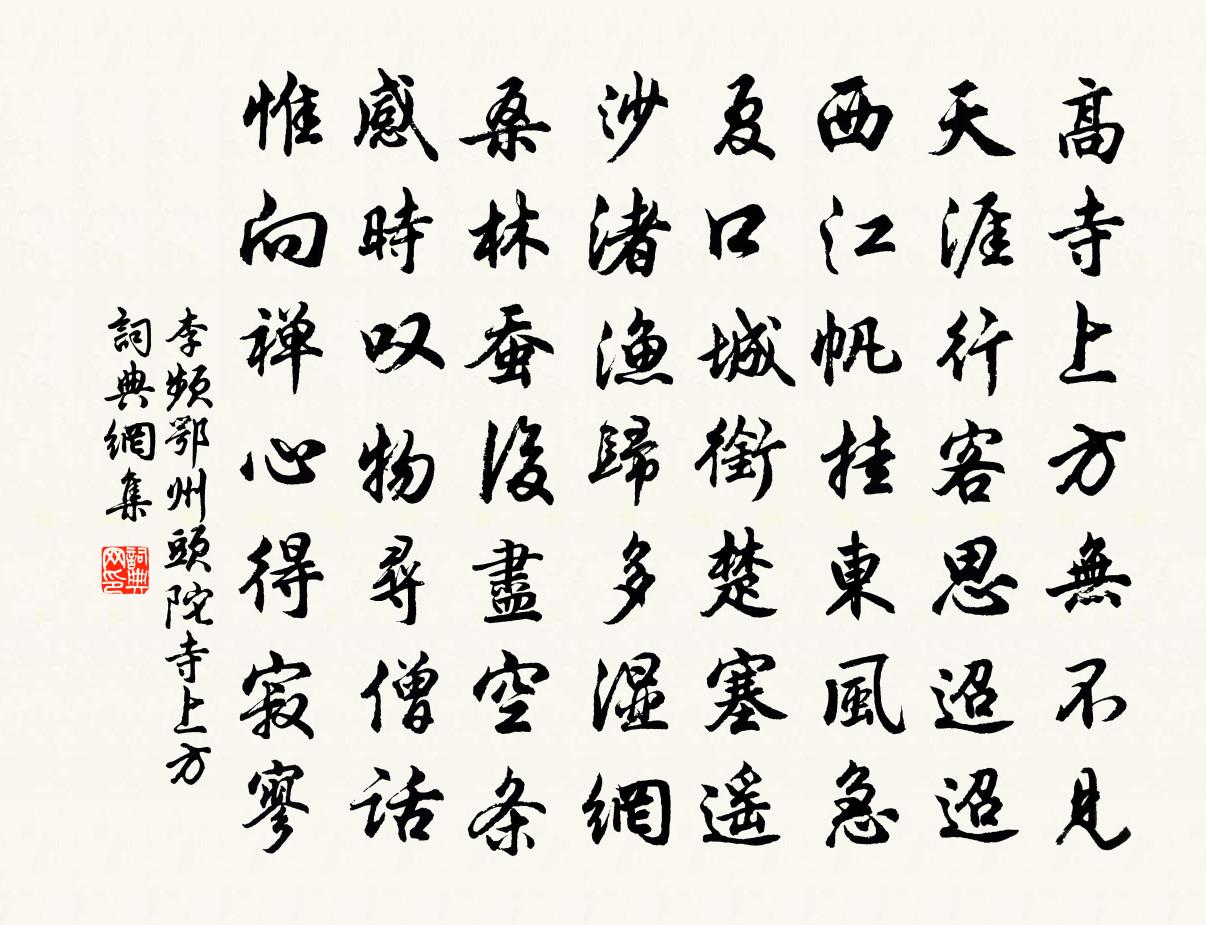 高寺上方無不見
天涯行客思迢迢
西江帆挂東風急
夏口城銜楚塞遥
沙渚漁歸多湿網
桑林蚕後盡空条
感時叹物尋僧話
惟向禅心得寂寥
李頻鄂州頭陀寺上方
詞典網集
詞典网印